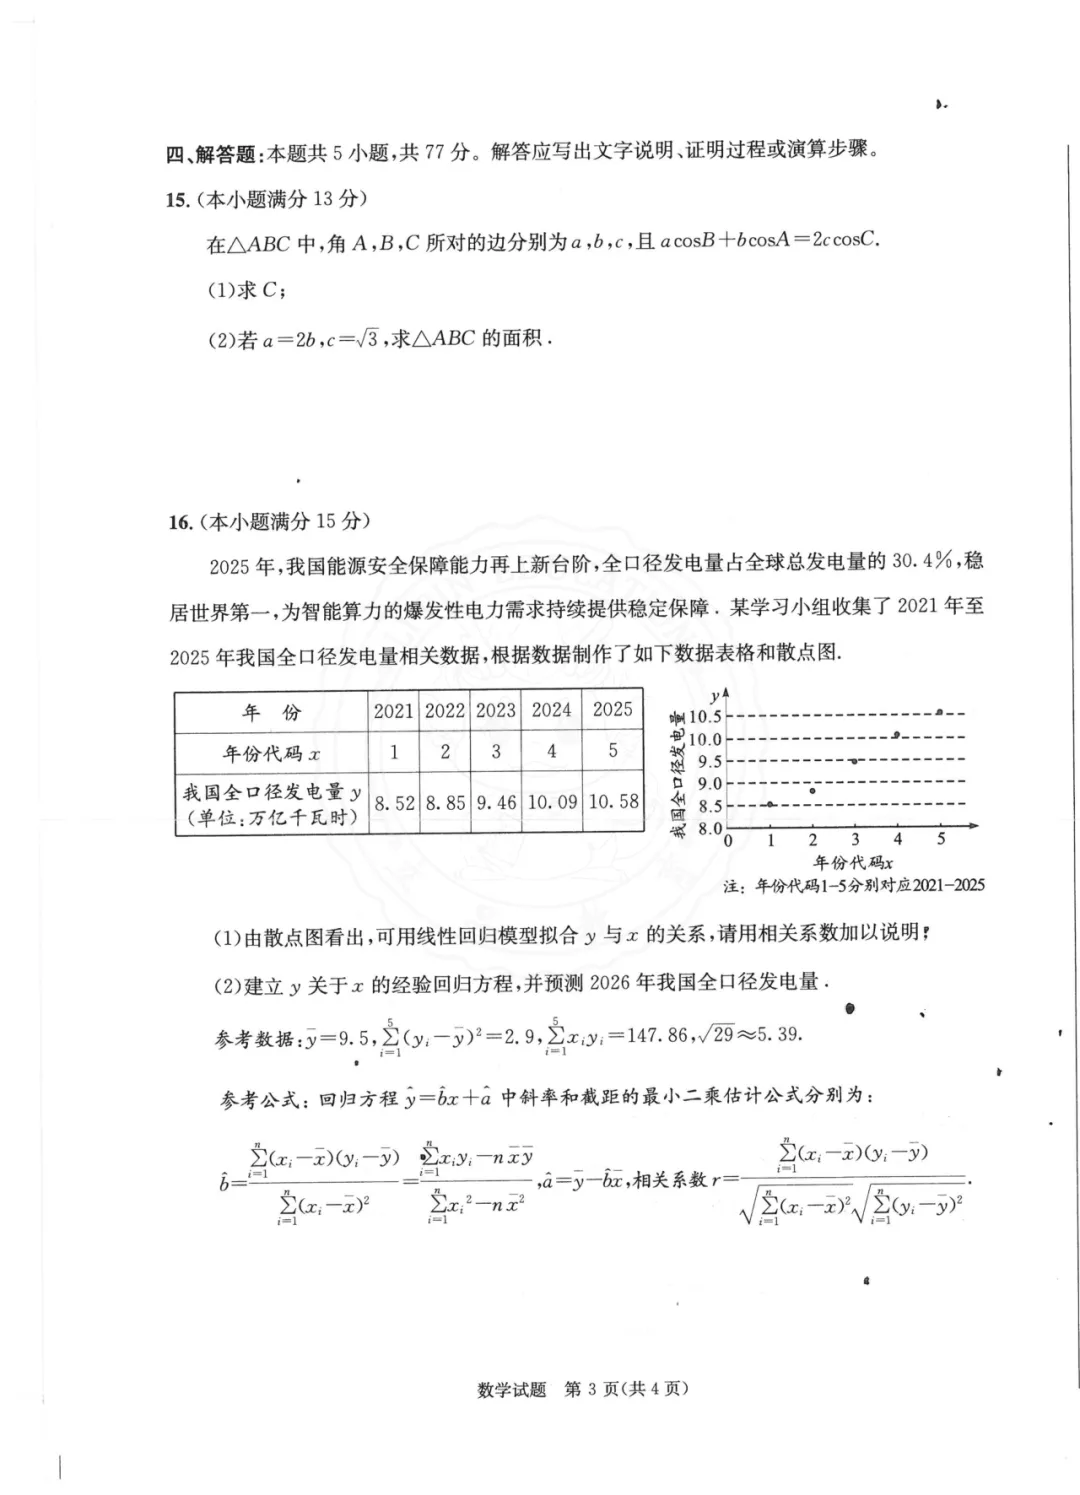 四、解答题:本题共 5 小题,共 77 分。解答应写出文字说明、证明过程或演算步骤。
15.(本小题满分 13 分)
在△ABC 中,角 A,B,C 所对的边分别为 a,b,c,且 acosB+bcosA=2ccosC.
(1)求 C;
(2)若 a=2b,c=√3,求△ABC 的面积.
16.(本小题满分 15 分)
2025 年,我国能源安全保障能力再上新台阶,全口径发电量占全球总发电量的 30.4%,稳
居世界第一,为智能算力的爆发性电力需求持续提供稳定保障.某学习小组收集了 2021 年至
2025 年我国全口径发电量相关数据,根据数据制作了如下数据表格和散点图.
年 份 2021 2022 2023 2024 2025
年份代码 x 1 2 3 4 5
我国全口径发电量 y
(单位:万亿千瓦时) 8.52 8.85 9.46 10.09 10.58
y
我国全口径发电量
10.5
10.0
9.5
9.0
8.5
8.0
0 1 2 3 4 5
年份代码x
注: 年份代码1-5分别对应2021-2025
(1)由散点图看出,可用线性回归模型拟合 y 与 x 的关系,请用相关系数加以说明;
(2)建立 y 关于 x 的经验回归方程,并预测 2026 年我国全口径发电量.
参考数据:y̅=9.5,∑_{i=1}^{5}(y_i-y̅)²=2.9,∑_{i=1}^{5}x_iy_i=147.86,√29≈5.39.
参考公式:回归方程 ŷ=b̂x+â 中斜率和截距的最小二乘估计公式分别为:
b̂=∑_{i=1}^{n}(x_i-x̅)(y_i-y̅)/∑_{i=1}^{n}(x_i-x̅)²=(∑_{i=1}^{n}x_iy_i-nx̅y̅)/(∑_{i=1}^{n}x_i²-nx̅²),â=y̅-b̂x̅,相关系数 r=∑_{i=1}^{n}(x_i-x̅)(y_i-y̅)/(√∑_{i=1}^{n}(x_i-x̅)²√∑_{i=1}^{n}(y_i-y̅)²).
数学试题 第 3 页(共 4 页)